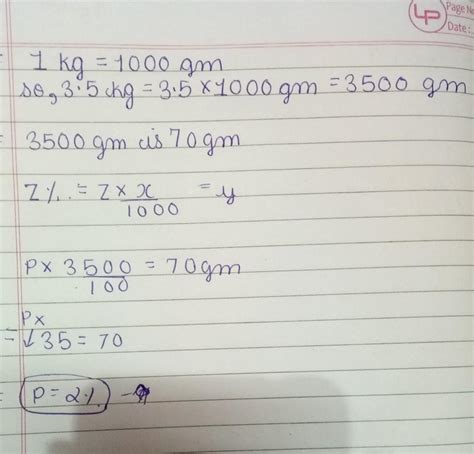 LP Page No
Date:
1 kg = 1000 gm
so, 3.5 kg = 3.5 × 1000 gm = 3500 gm
3500 gm is 70 gm
Z%. = Z × x/1000 = y
P× 3500/100 = 70gm
P×
= ↓35 = 70
P = 2%.